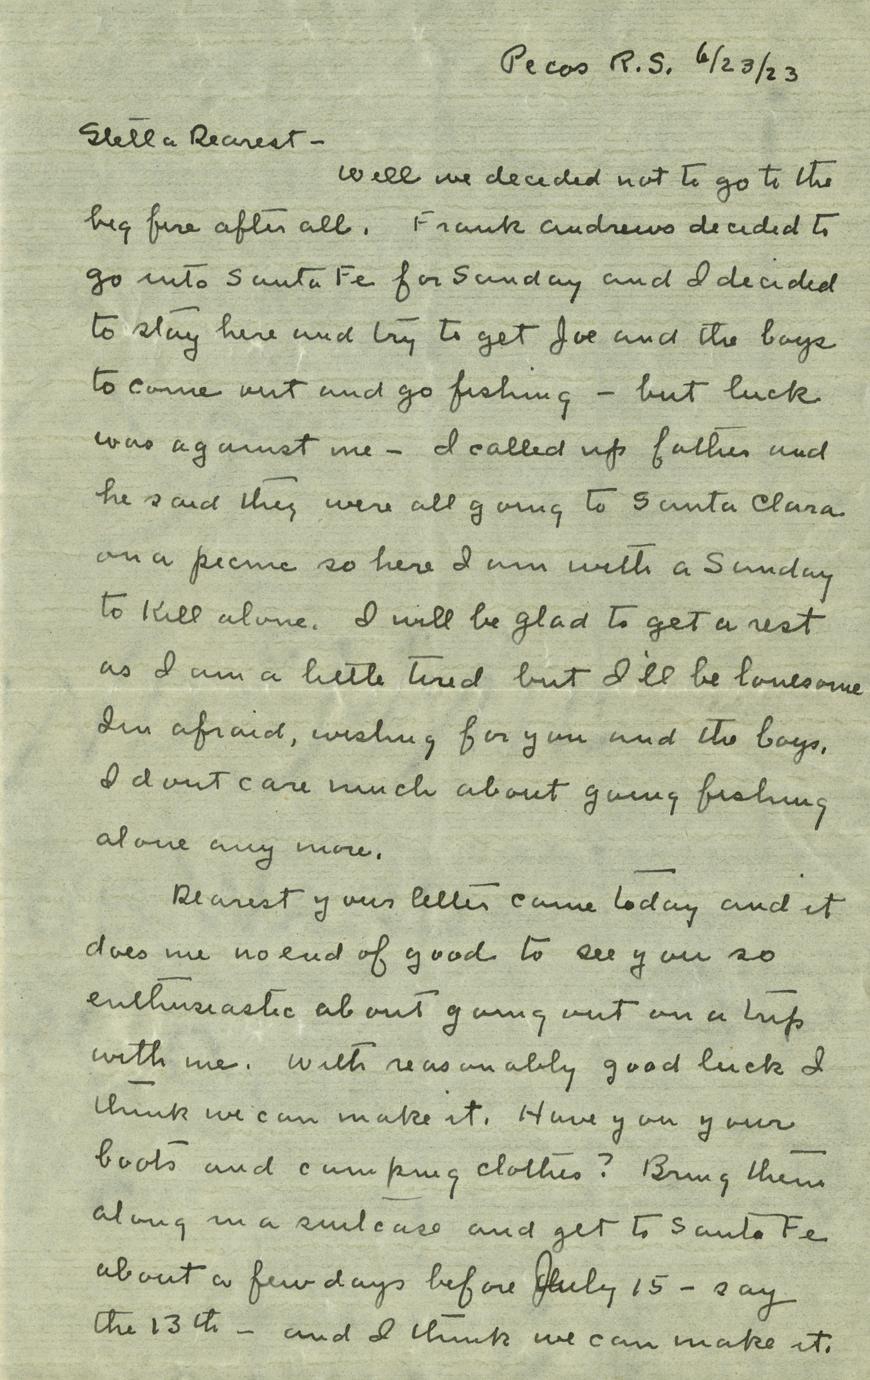 Pecos R.S. 6/23/23
Stella Dearest –
Well we decided not to go to the
big fire after all. Frank Andrews decided to
go into Santa Fe for Sunday and I decided
to stay here and try to get Joe and the boys
to come out and go fishing – but luck
was against me – I called up father and
he said they were all going to Santa Clara
on a picnic so here I am with a Sunday
to kill alone. I will be glad to get a rest
as I am a little tired but I'll be lonesome
Im afraid, wishing for you and the boys.
I dont care much about going fishing
alone any more.
Dearest your letter came today and it
does me no end of good to see you so
enthusiastic about going out on a trip
with me. With reasonably good luck I
think we can make it. Have you your
boots and camping clothes? Bring them
along in a suitcase and get to Santa Fe
about a few days before July 15 – say
the 13th – and I think we can make it.